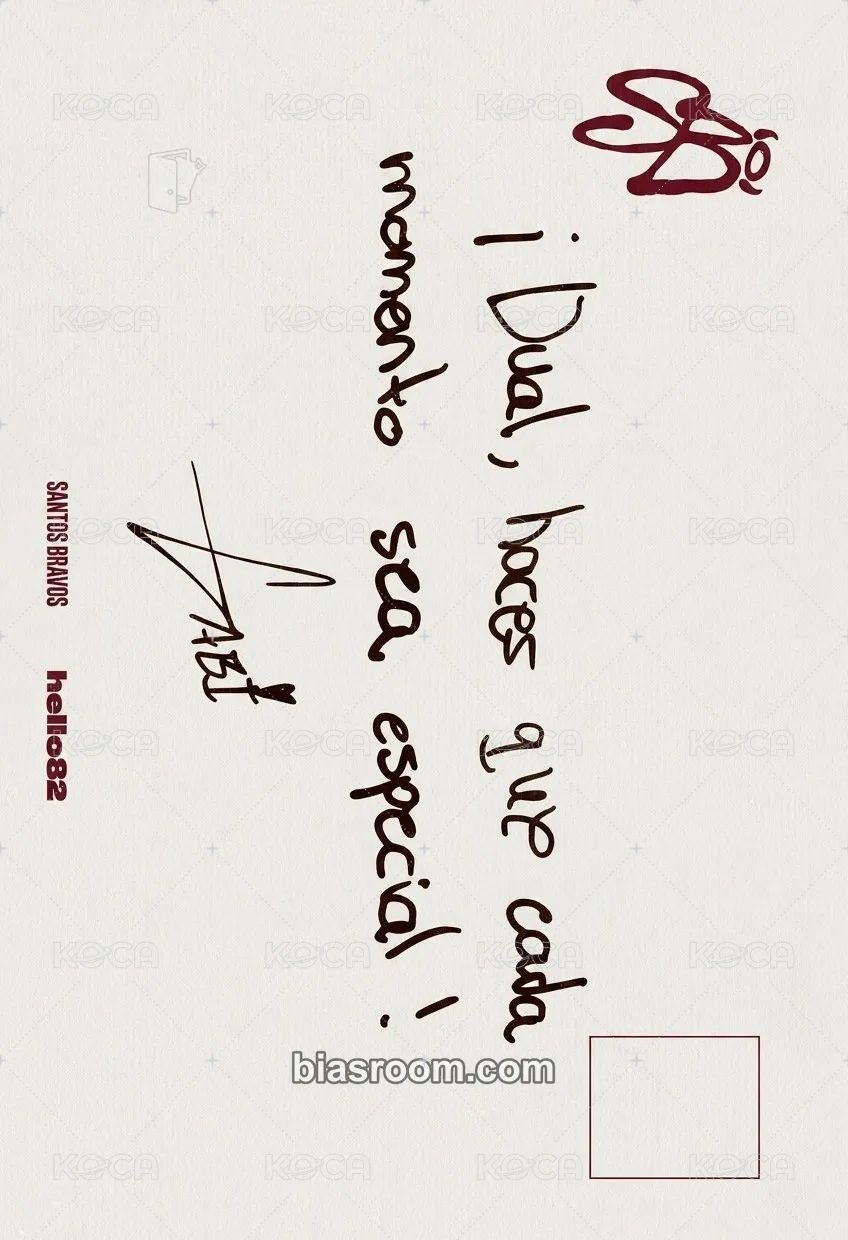 ¡Dual, haces que cada
momento sea especial!
GABI
SANTOS BRAVOS hello82
biasroom.com
KOCA